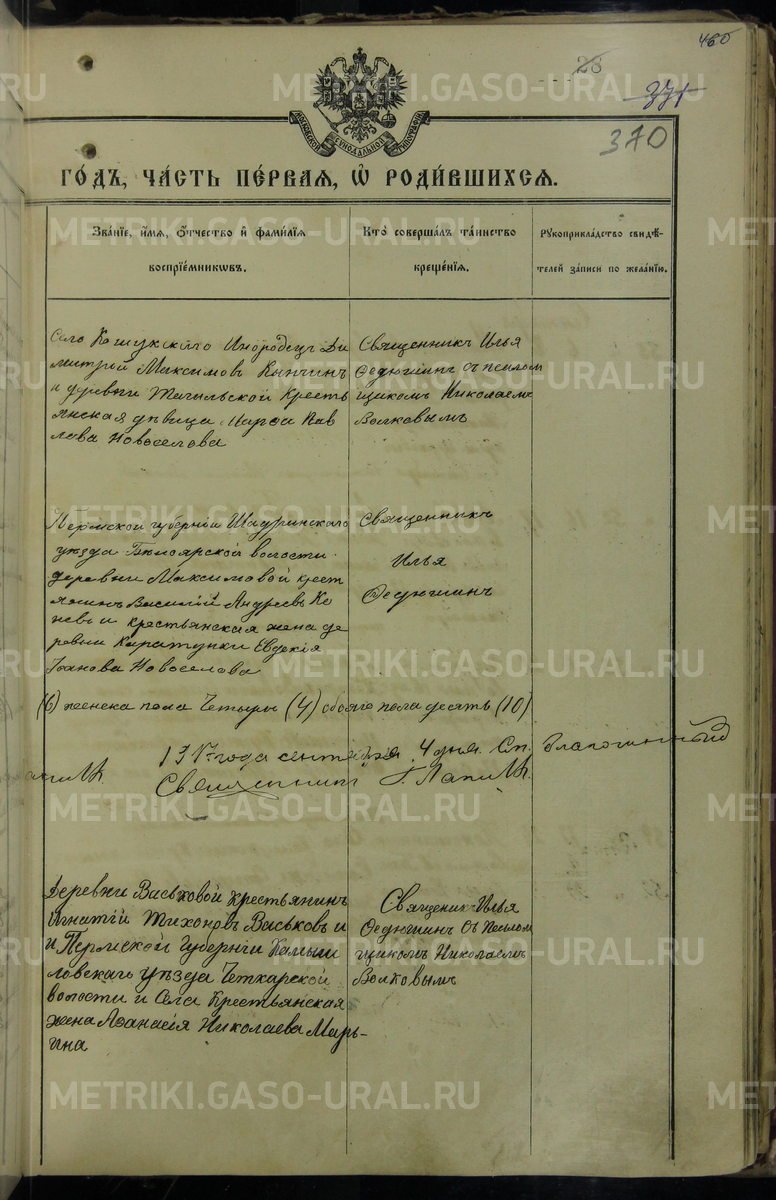 460
28
371
370
МОСКОВСКОЙ СУНОДАЛЬНОЙ ТИПОГРАФІИ
ГО́ДЪ, ЧА́СТЬ ПЕ́РВАЯ, Ѿ РОДИ́ВШИХСЯ.
Зва́ніе, и́мя, ѻ́тчество и҆ фами́лія
воспріе́мникѡвъ.
Кто̀ соверша́лъ та́инство
креще́нія.
Рꙋкоприкла́дство свидѣ́-
телей за́писи по жела́нію.
Село Кошукскаго Инородецъ Ди
митрій Максимовъ Кыпчинъ
и деревни Жагильской Кресть
янская дѣвица Марѳа Пав
лова Новоселова
Священникъ Илья
Федюшинъ съ псалом
щикомъ Николаемъ
Волковымъ
Пермской губерніи Шадринскаго
уѣзда Бѣлоярской волости
деревни Максимовой крест
янинъ Василій Андреевъ Ко
невъ и крестьянская жена де
ревни Каратунки Евдокія
Іванова Новоселова
Священникъ
Илья
Федюшинъ
(6) женска пола Четыры (4) обоего пола десять (10)
года сентября 4 дня. Сп. Благочинный
Священникъ Г. Напинъ.
Деревни Васьковой Крестьянинъ
Игнатій Тихоновъ Васьковъ и
и Пермской Губерніи Камыш
ловскаго уѣзда Четкарской
волости и Села Крестьянская
жена Афанасія Николаева Марь-
ина
Священикъ Илья
Федюшинъ съ Псалом
щикомъ Николаемъ
Волковымъ
METRIKI.GASO-URAL.RU